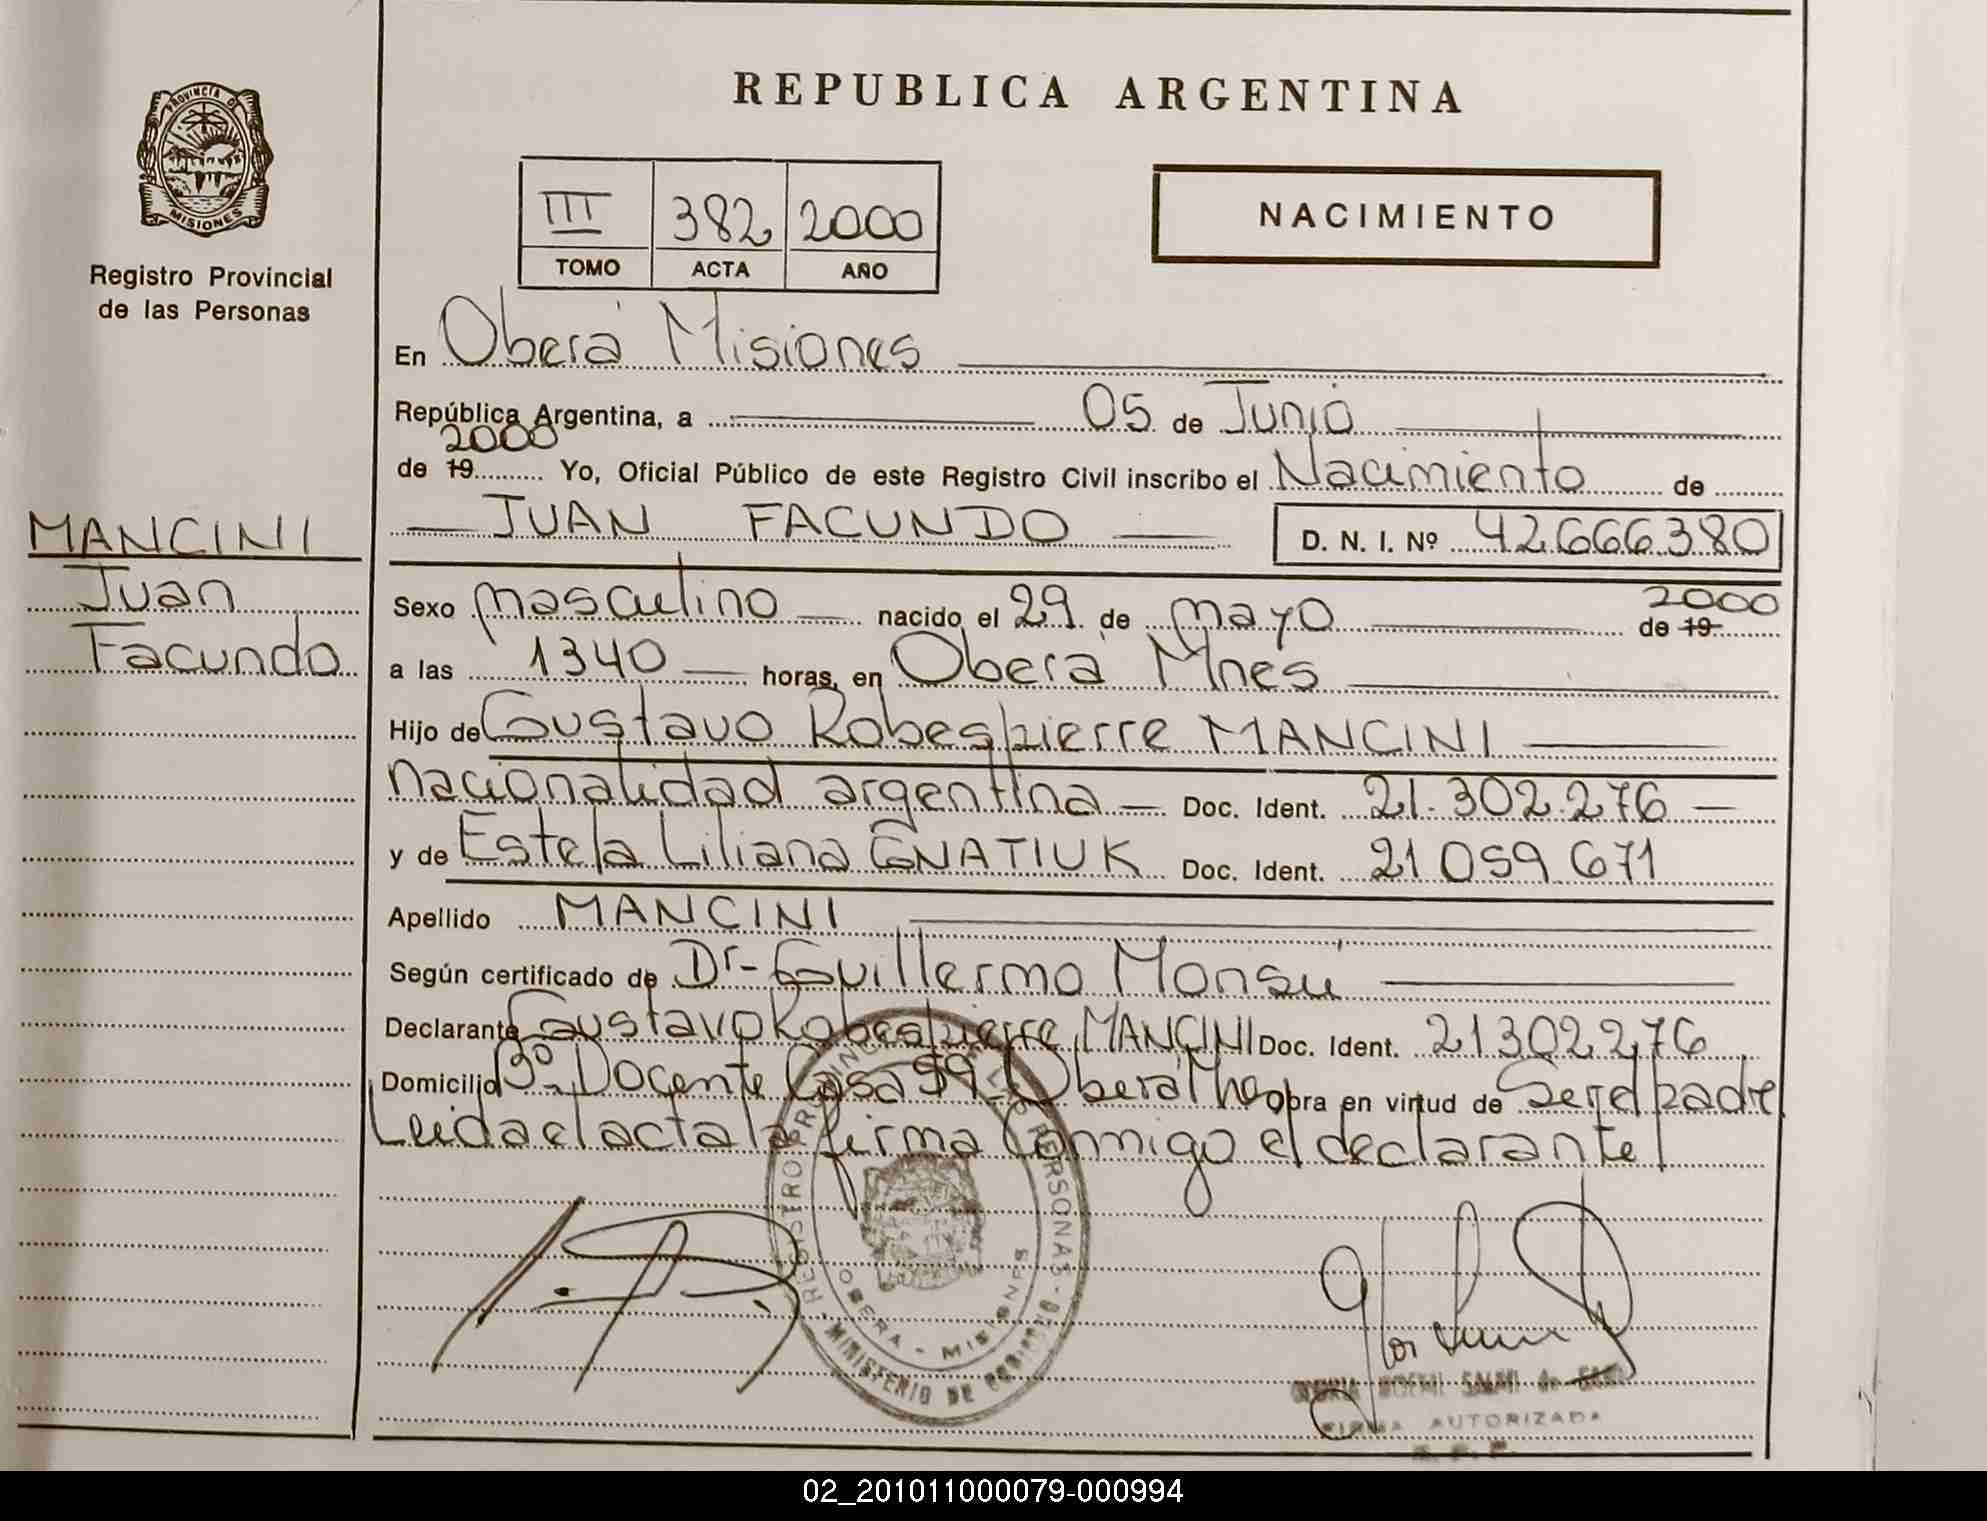 REPUBLICA ARGENTINA
PROVINCIA D
MISIONES
Registro Provincial
de las Personas
III 382 2000
TOMO ACTA AÑO
NACIMIENTO
En Oberá Misiones
República Argentina, a 05 de Junio
2000
de 19 Yo, Oficial Público de este Registro Civil inscribo el Nacimiento de
JUAN FACUNDO D. N. I. Nº 42.666.380
MANCINI
Juan
Facundo
Sexo masculino nacido el 29 de mayo de 19 2000
a las 1340 horas, en Oberá Mnes
Hijo de Gustavo Robespierre MANCINI
nacionalidad argentina Doc. Ident. 21.302.276
y de Estela Liliana GNATIUK Doc. Ident. 21 059 671
Apellido MANCINI
Según certificado de Dr- Guillermo Monsu
Declarante Gustavo Robespierre MANCINI Doc. Ident. 21302276
Domicilio Bº Docente Casa 59 Oberá obra en virtud de Ser el padre
Leida el acta la firma Conmigo el declarante
REGISTRO PROVINCIAL DE LAS PERSONAS
OBERA - MISIONES
MINISTERIO DE GOBIERNO
FIRMA AUTORIZADA
02_201011000079-000994